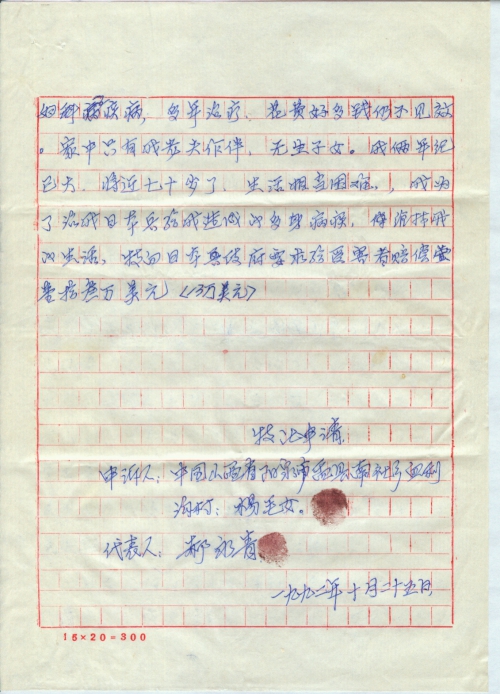 妇科疾病，多年治疗，花费好多钱仍不见效
。家中只有我老夫作伴，无生子女。我俩年纪
已大，将近七十岁了，生活相当困难，我为
了治我日本兵给我造成的多身病，维持我
的生活，特向日本政府要求给受害者赔偿
美元〈3万美元〉
特此申请
申诉人：中国山西省阳泉市盂县南社乡
沟村：杨壬女。
代表人：郝
一九九二年十月二十五日
15×20=300